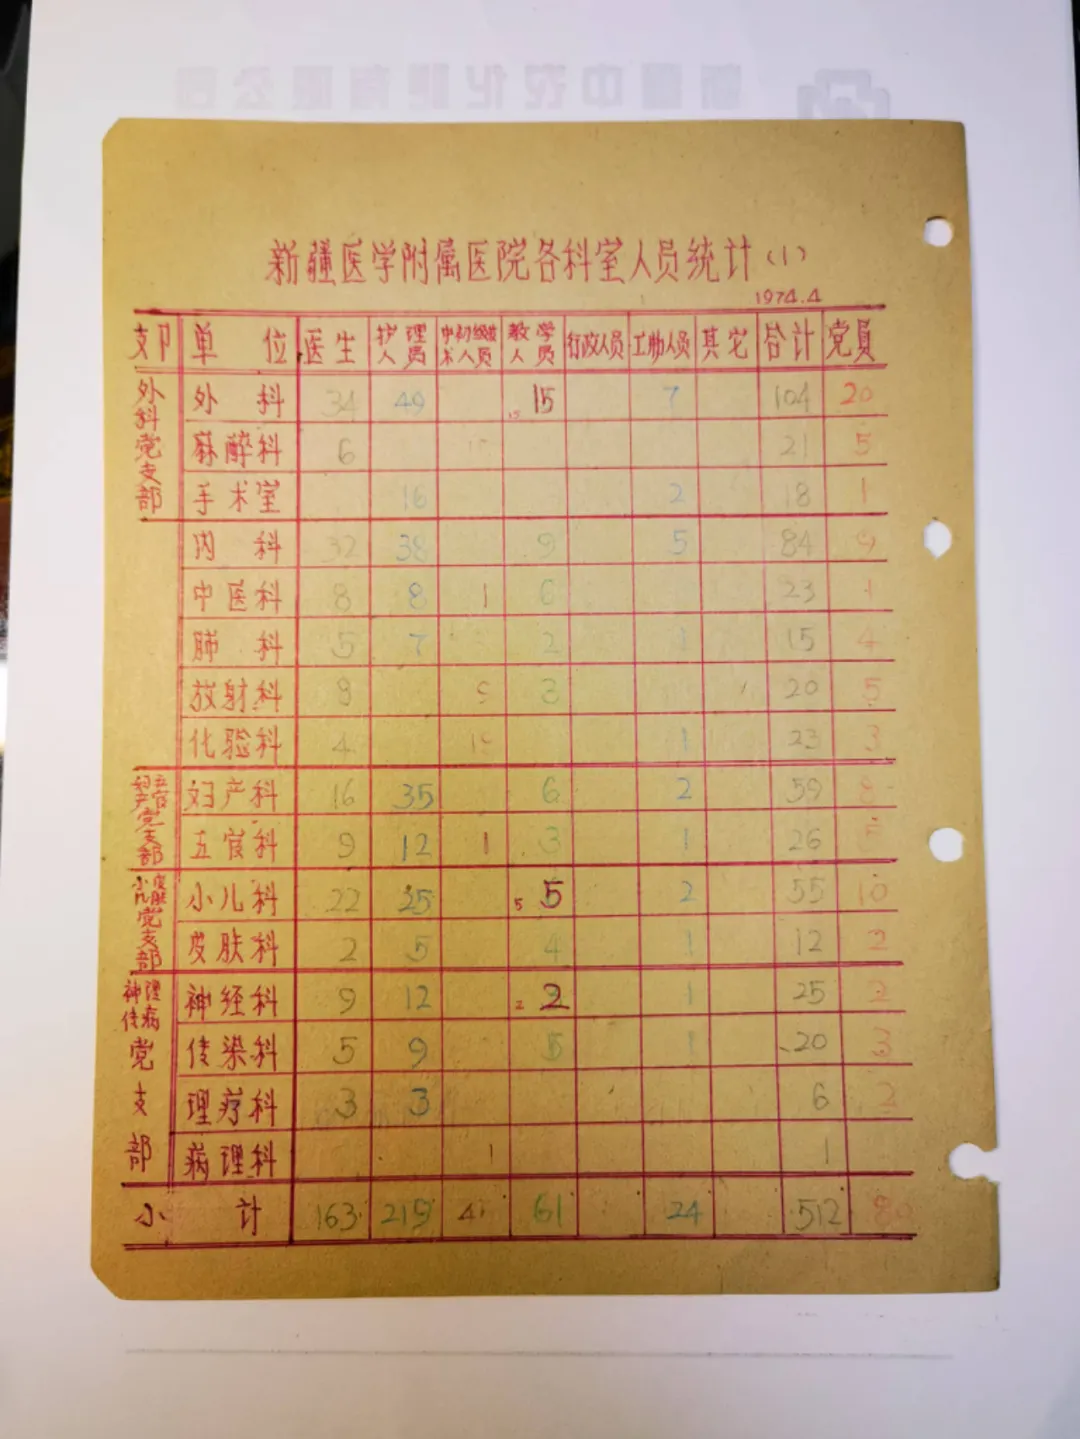 新疆医学附属医院各科室人员统计(1)
1974.4
支卩 单位 医生 护理人员 中初级技术人员 教学人员 行政人员 工勤人员 其它 合计 党员
外科党支部
外科 34 49 15 15 7 104 20
麻醉科 6 21 5
手术室 16 2 18 1
内科 32 38 9 5 84
中医科 8 8 1 6 23 1
肺科 5 7 2 1 15 4
放射科 3 20 5
化验科 4 1 23 3
妇产五官党支部
妇产科 16 35 6 2 59 8
五官科 9 12 1 3 1 26
小儿皮肤党支部
小儿科 22 25 5 5 2 55 10
皮肤科 2 5 4 1 12 2
神理传病党支部
神经科 9 12 2 2 1 25 2
传染科 5 9 5 1 20 3
理疗科 3 3 6 2
病理科 1 1
小计 163 215 61 24 512